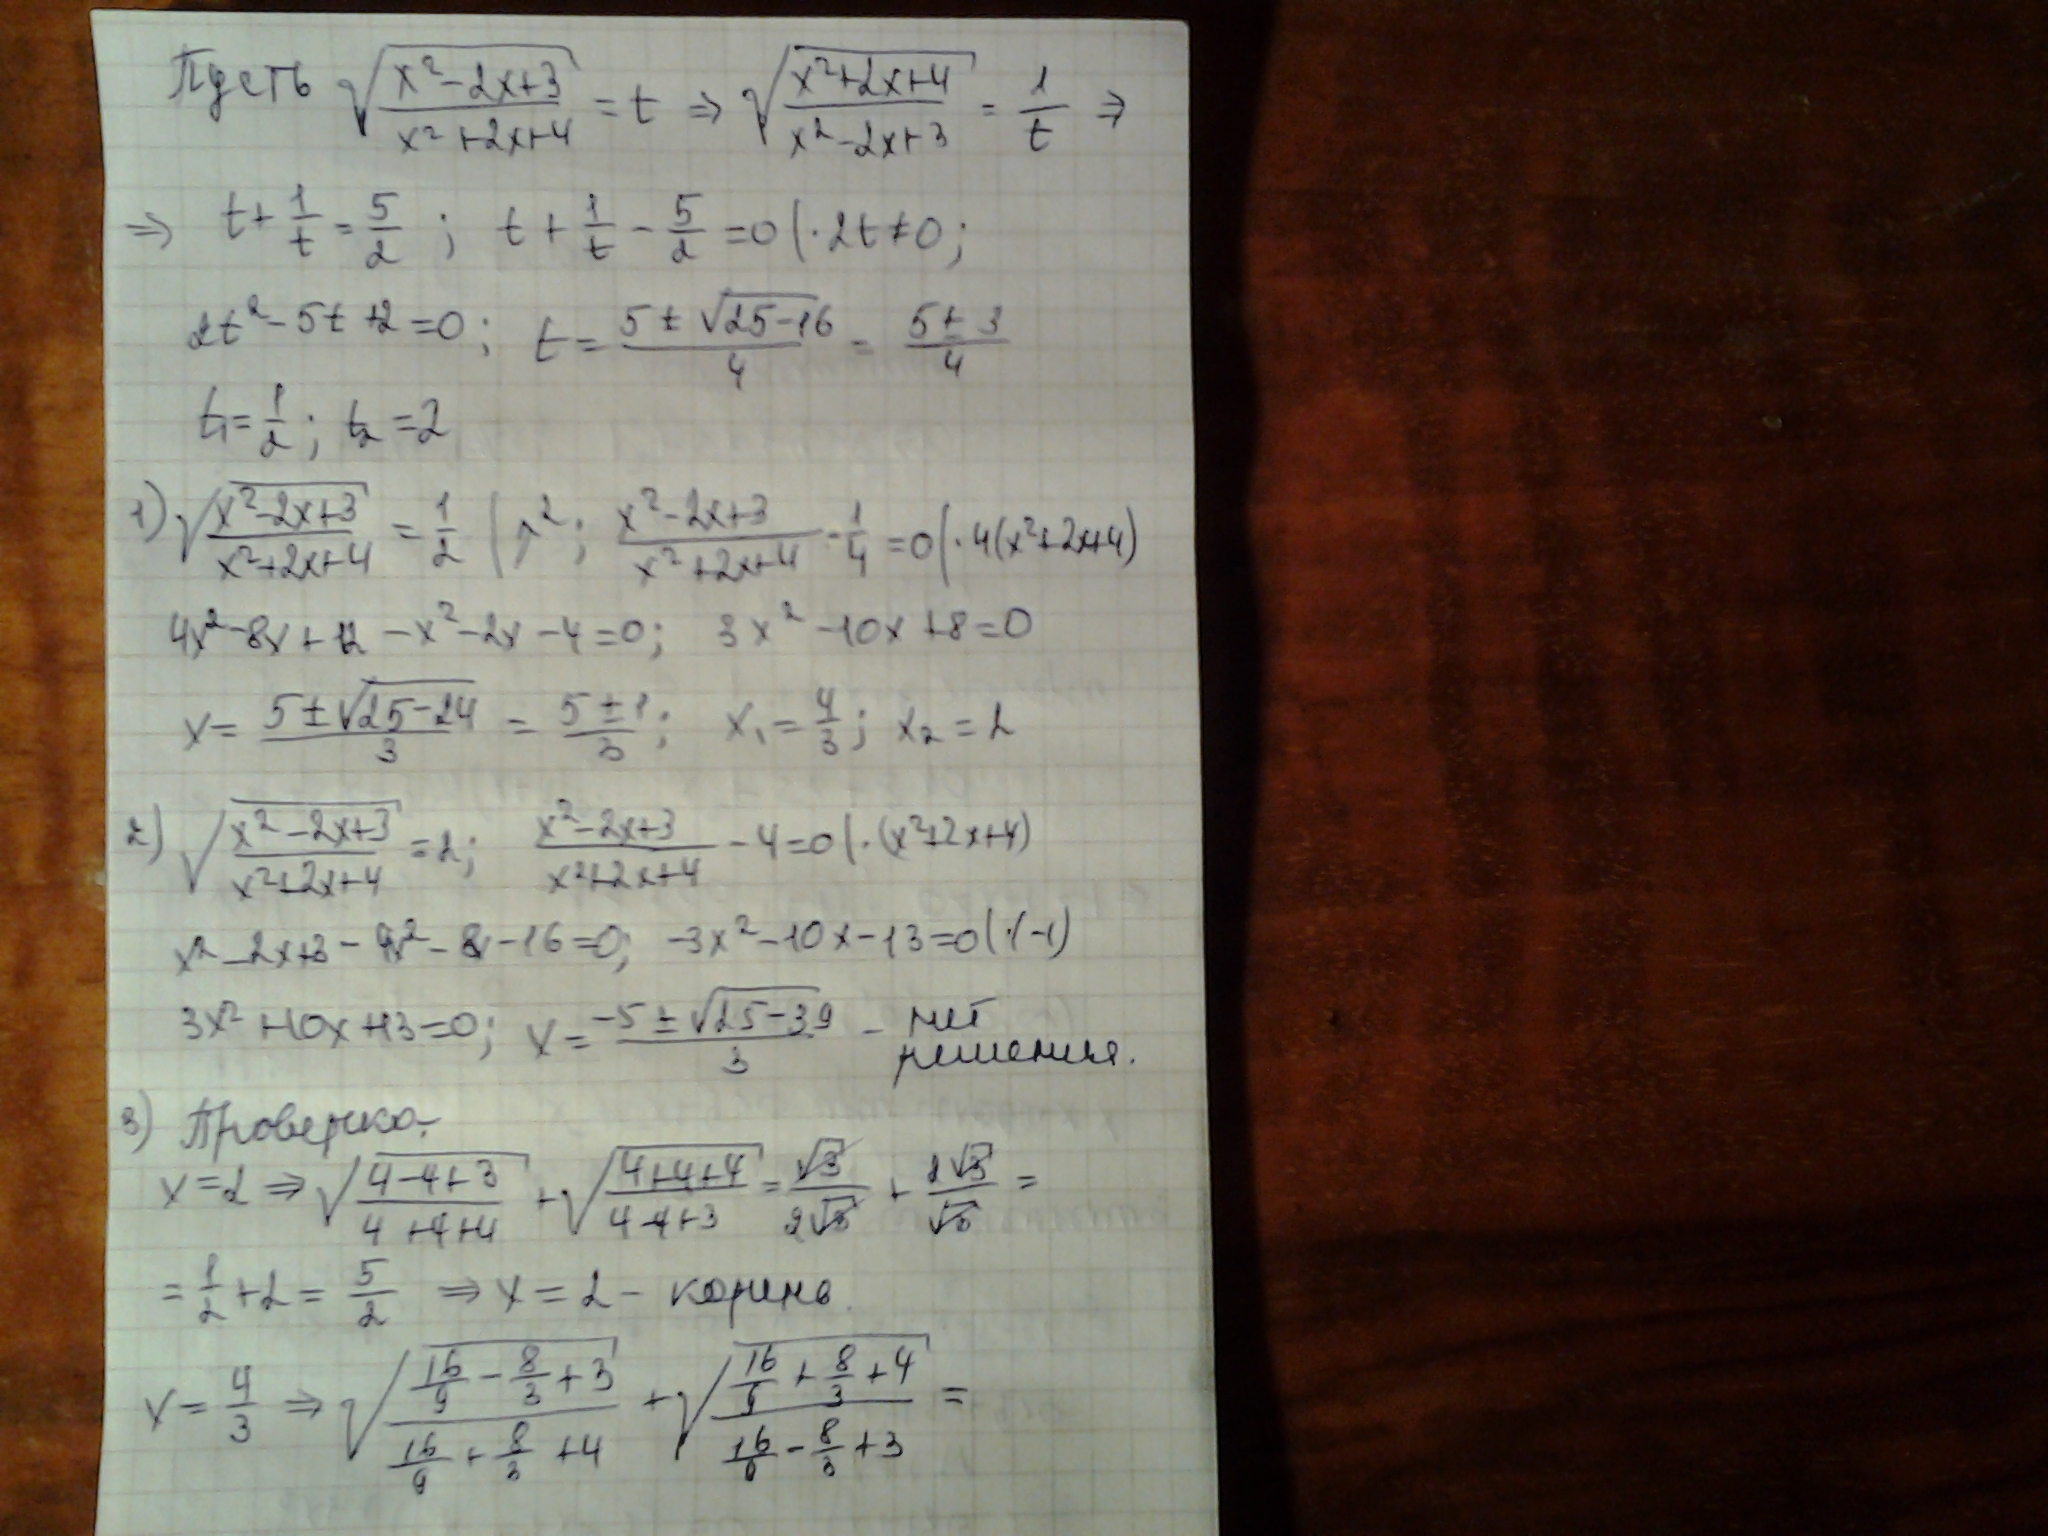 Пусть √((x²-2x+3)/(x²+2x+4)) = t ⇒ √((x²+2x+4)/(x²-2x+3)) = 1/t ⇒
⇒ t + 1/t = 5/2 ; t + 1/t - 5/2 = 0 |·2t ≠ 0;
2t² - 5t + 2 = 0; t = (5 ± √(25-16))/4 = (5 ± 3)/4
t₁ = 1/2; t₂ = 2
1) √((x²-2x+3)/(x²+2x+4)) = 1/2 |^²; (x²-2x+3)/(x²+2x+4) - 1/4 = 0 |·4(x²+2x+4)
4x² - 8x + 12 - x² - 2x - 4 = 0; 3x² - 10x + 8 = 0
x = (5 ± √(25-24))/3 = (5 ± 1)/3; x₁ = 4/3; x₂ = 2
2) √((x²-2x+3)/(x²+2x+4)) = 2; (x²-2x+3)/(x²+2x+4) - 4 = 0 |·(x²+2x+4)
x² - 2x + 3 - 4x² - 8x - 16 = 0; -3x² - 10x - 13 = 0 |·(-1)
3x² + 10x + 13 = 0; x = (-5 ± √(25-39))/3 - нет
решения.
3) Проверка:
x = 2 ⇒ √((4-4+3)/(4+4+4)) + √((4+4+4)/(4-4+3)) = √3/(2√3) + 2√3/√3 =
= 1/2 + 2 = 5/2 ⇒ x = 2 - корень.
x = 4/3 ⇒ √((16/9 - 8/3 + 3)/(16/9 + 8/3 + 4)) + √((16/9 + 8/3 + 4)/(16/9 - 8/3 + 3)) =